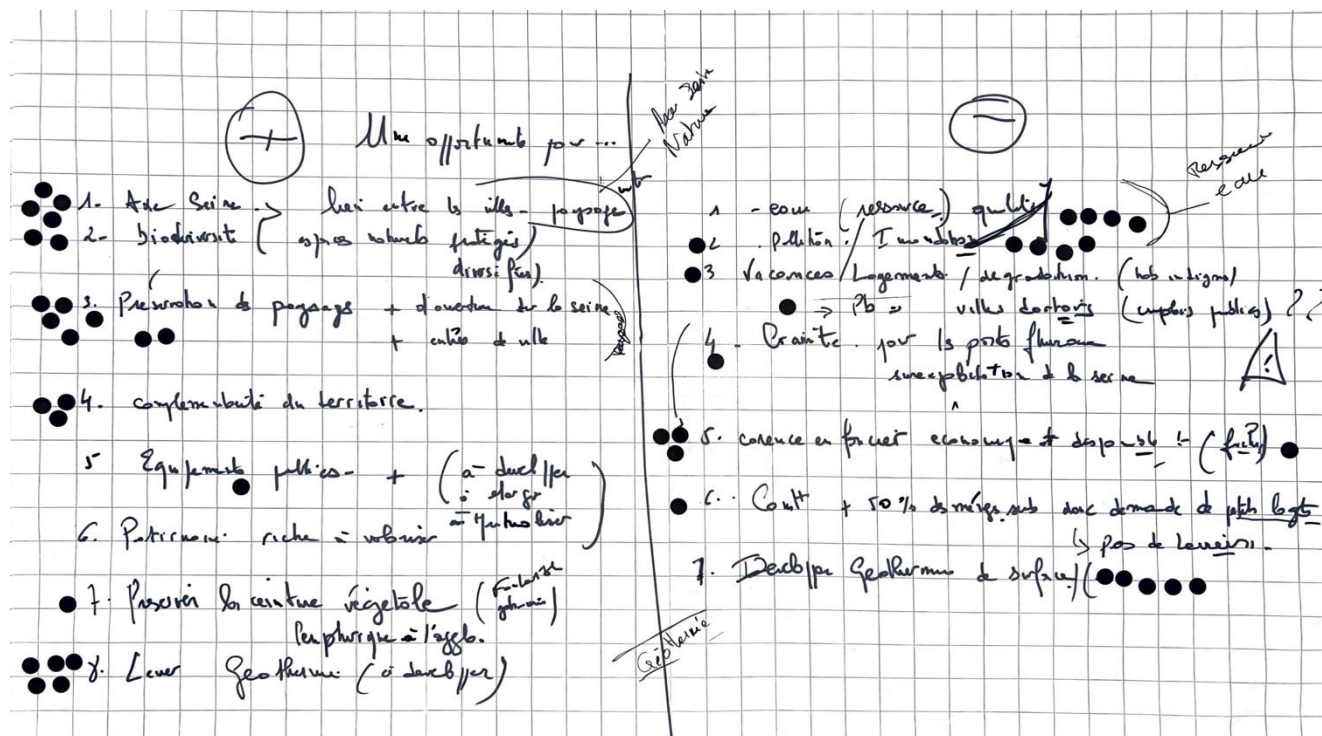 + Une opportunité pour ...
Axe Seine
Nature
1. Axe Seine -> lien entre les villes - paysage
2. biodiversité ( espaces naturels protégés
diversifiés).
3. Préservation des paysages + d'ouverture sur la seine
+ entrées de ville
Paysage
4. complémentarité du territoire.
5 Equipements publics - + (à développer
à élargir
à mutualiser)
6. Patrimoine riche à valoriser
7. Préserver la ceinture végétale
périphérique à l'agglo.
8. Levier Géothermie (à développer)
-
Ressource
eau
1 - eau (ressource) qualité
2 - Pollution / Inondations
3 Vacances / Logements / dégradation. (hab indigne)
-> Pb = villes dortoirs (emplois publics) ??
4 - Crainte pour les ports fluviaux
surexploitation de la seine
!
5. carence en foncier économique disponible !- (friches)
6. Const + 50% de ménages seuls donc demande de petits logts
↳ pas de terrains.
7. Développer Géothermie de surface
Géothermie